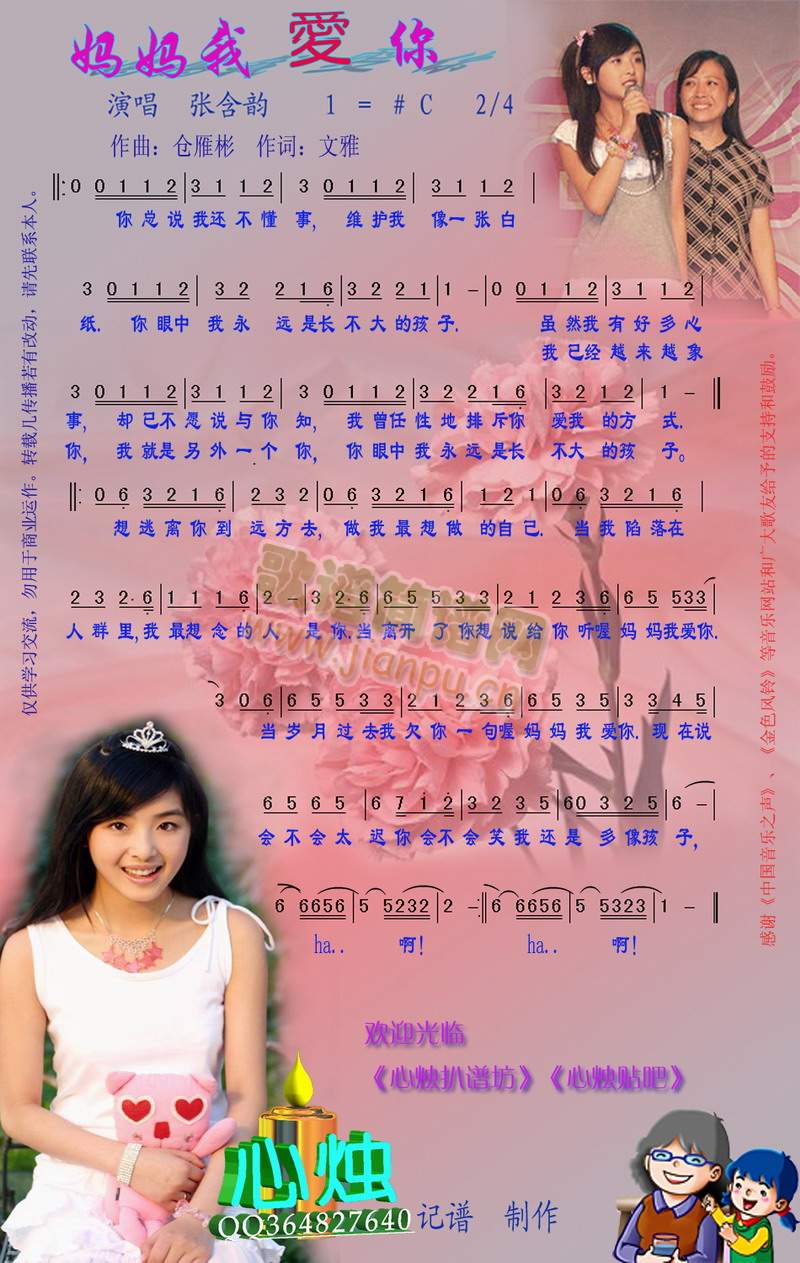 妈妈我愛你
演唱 张含韵 1 = #C 2/4
作曲：仓雁彬 作词：文雅
0 0 1 1 2 | 3 1 1 2 | 3 0 1 1 2 | 3 1 1 2 |
你总说我还不懂 事, 维护我 像一张白
3 0 1 1 2 | 3 2 2 1 6 | 3 2 2 1 | 1 - | 0 0 1 1 2 | 3 1 1 2
纸. 你眼中 我永 远是长不大的孩子. 虽然我有好多心
我已经越来越象
3 0 1 1 2 | 3 1 1 2 | 3 0 1 1 2 | 3 2 2 1 6 | 3 2 1 2 | 1 -
事, 却已不愿说与你 知, 我曾任性地排斥你 爱我 的方 式.
你, 我就是另外一个 你, 你眼中我永远是长 不大 的孩 子。
0 6 3 2 1 6 | 2 3 2 | 0 6 3 2 1 6 | 1 2 1 | 0 6 3 2 1 6
想逃离你到 远方去, 做我最想做 的自己. 当我陷落在
2 3 2· 6 | 1 1 1 6 | 2 - | 3·2 3 6 | 6 5 5 3 3 | 2 2 1 2 3 6 | 6 5 533
人群里,我最想念的人 是你.当离开 了你想说给你听喔妈妈我爱你.
3 0 6 | 6 5 5 3 3 | 2 2 1 2 3 6 | 6 5 5 3 | 3 3 4 5
当岁月过去我欠你一句喔妈妈我爱你.现在说
6 5 6 5 | 6 7 1 2 | 3 2 3 5 | 6 0 3 2 5 | 6 -
会不会太 迟你会不会笑我还是 多像孩 子,
6 6656 | 5 5232 | 2 - :‖ 6 6656 | 5 5323 | 1 - ‖
ha.. 啊! ha.. 啊!
仅供学习交流，勿用于商业运作。转载几传播若有改动，请先联系本人。
感谢《中国音乐之声》、《金色风铃》等音乐网站和广大歌友给予的支持和鼓励。
歌谱简谱网
www.jianpu.cn
欢迎光临
《心烛扒谱坊》《心烛贴吧》
心烛
QQ364827640 记谱 制作